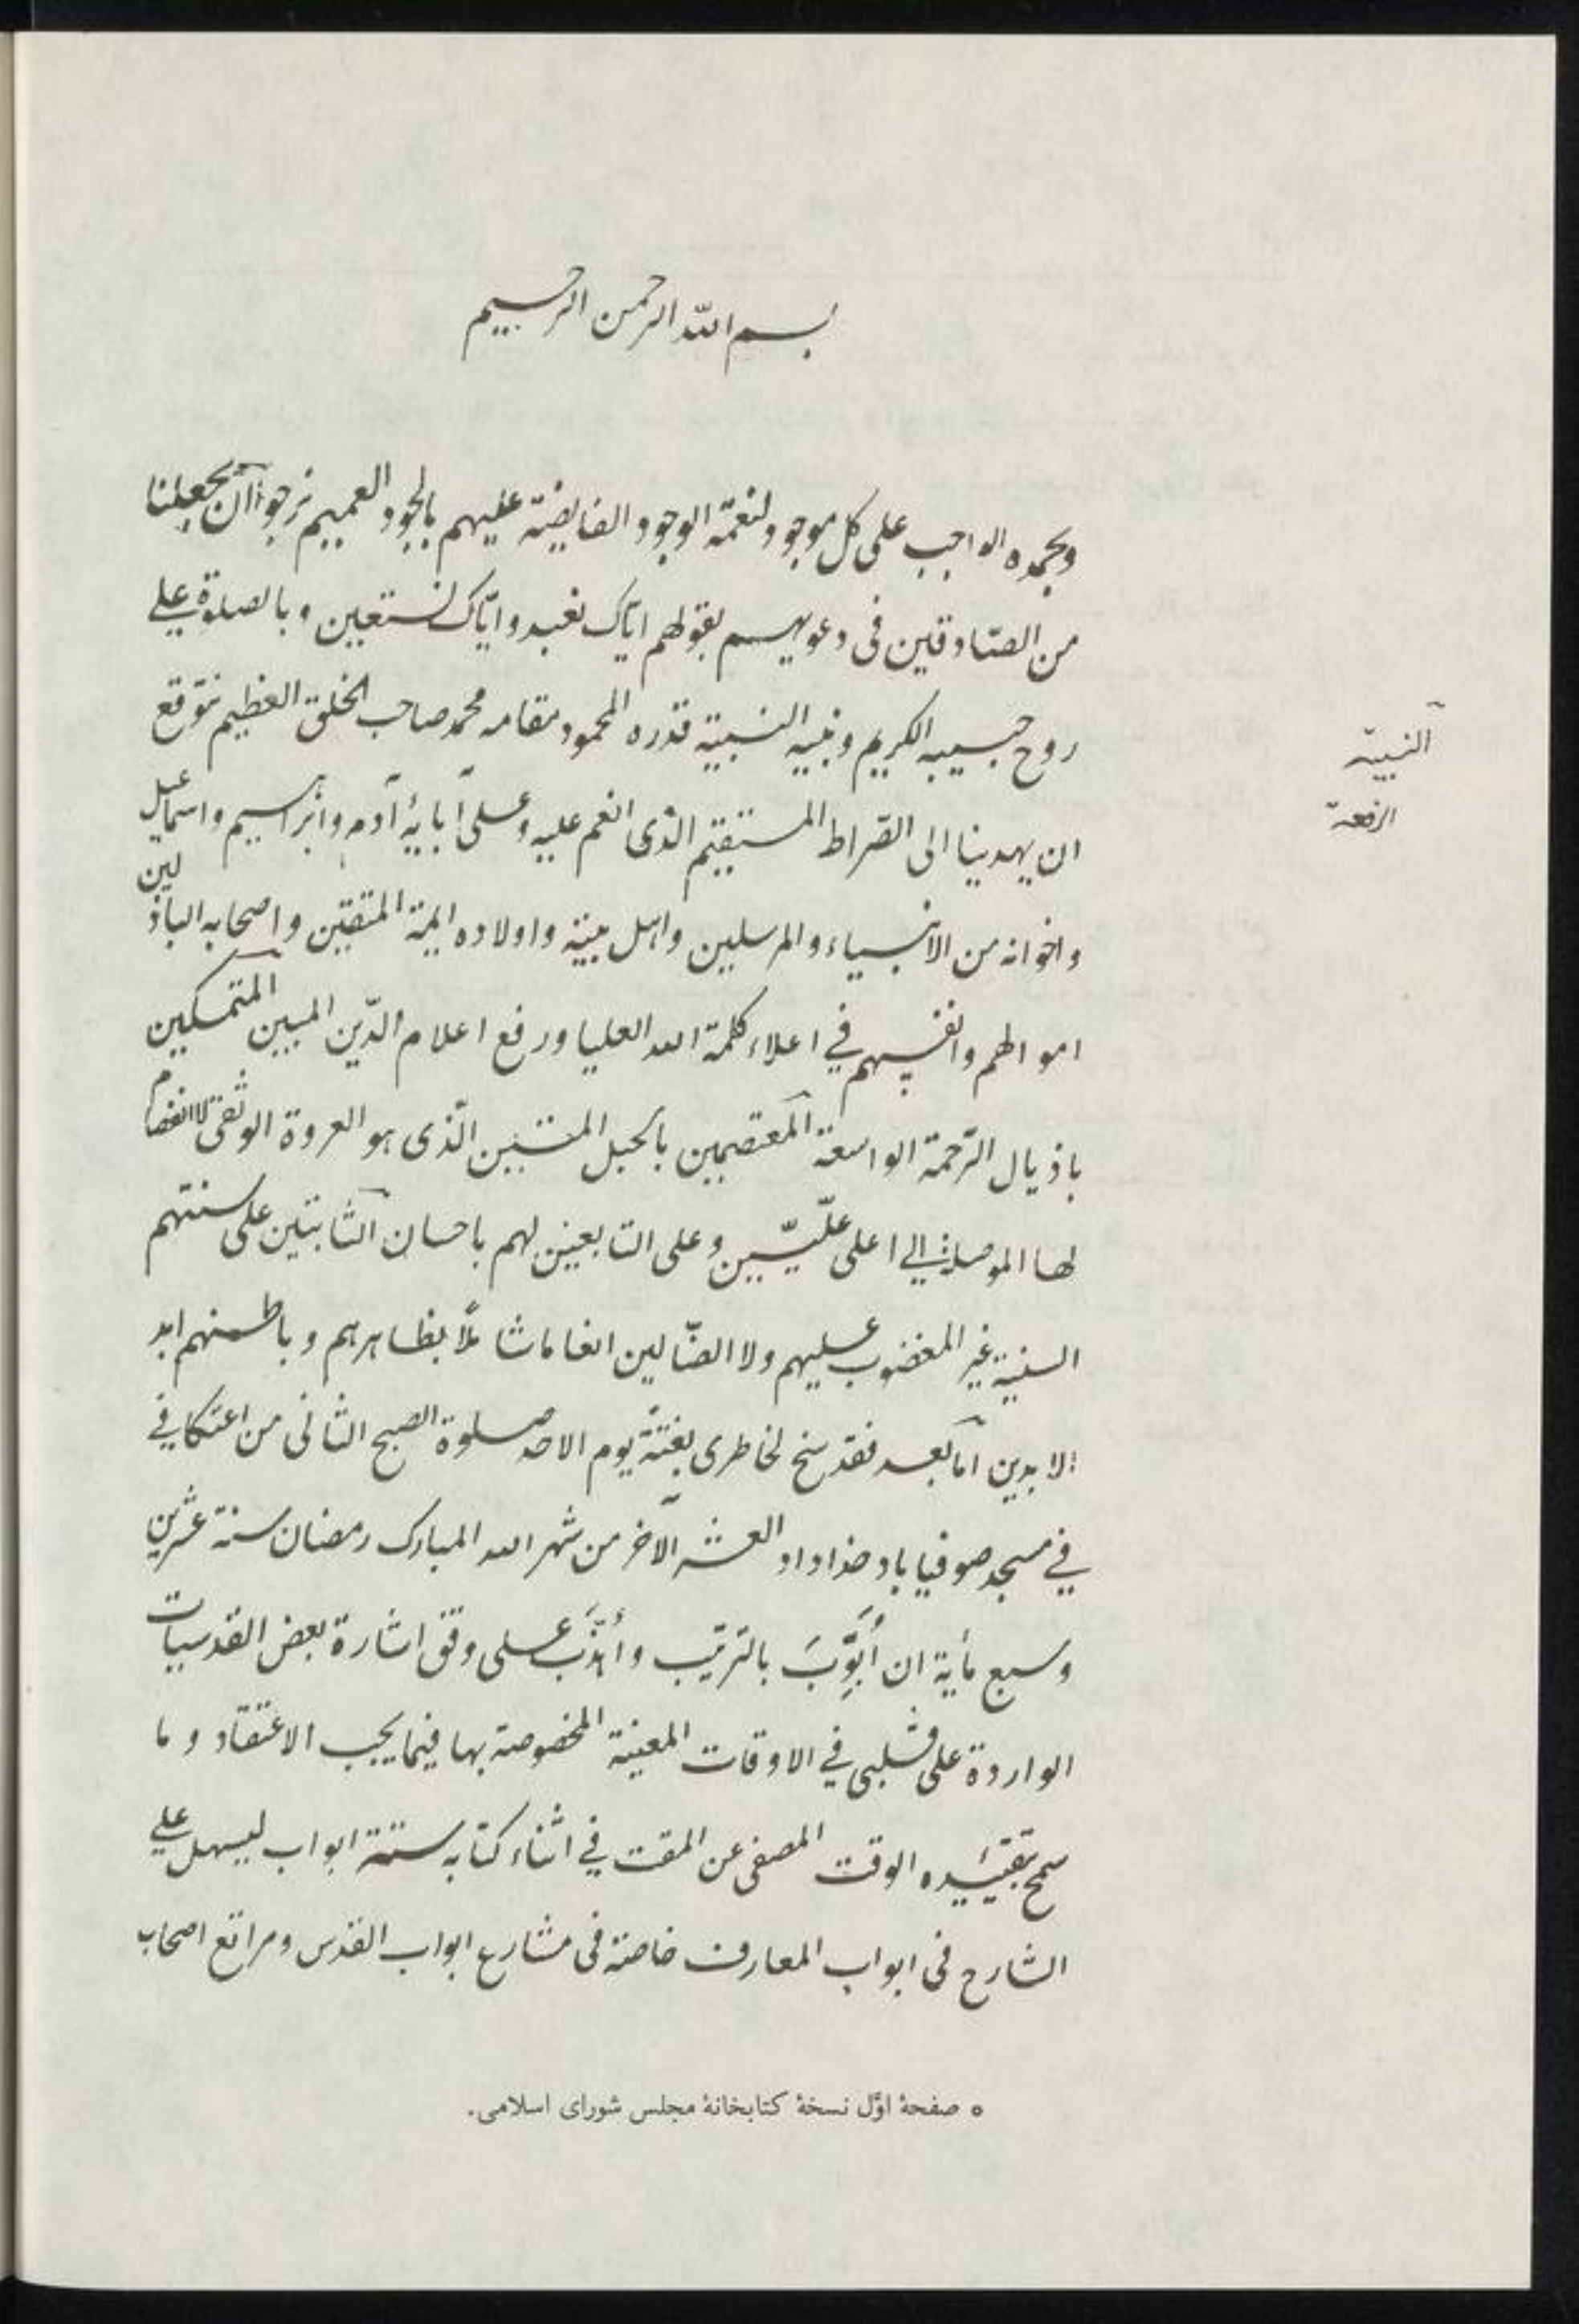 بسم الله الرحمن الرحيم
وبحمده الواجب على كل موجود لنعمة الوجود الفايضة عليهم بالجود العميم نرجوا ان يجعلنا
من الصّادقين فى دعويهم بقولهم ايّاک نعبد وايّاک نستعين وبالصلوة على
روح حبيبه الكريم ونبيه النبيّة قدره المحمود مقامه محمد صاحب الخلق العظيم نتوقع
النبيّة
الرفعة
ان يهدينا الى الصّراط المستقيم الذى انعم عليه وعلى آبائه آدم وابراهيم واسماعيل
واخوانه من الانبياء والمرسلين واهل بيته واولاده ايمة المتقين واصحابه الباذلين
اموالهم وانفسهم في اعلاء كلمة الله العليا ورفع اعلام الدّين المبين المتمسكين
باذيال الرّحمة الواسعة المعتصمين بالحبل المتين الّذى هو العروة الوثقى لاانفصام
لها الموصلة الى اعلى علّيّين وعلى التابعين لهم باحسان الثابتين على سنتهم
السنية غير المغضوب عليهم ولا الضّالين انعاما شاملاً بظاهرهم وباطنهم ابد
الابدين امّا بعد فقد سنح لخاطرى بغتةً يوم الاحد صلوة الصبح الثانى من اعتكافي
في مسجد صوفياباد خداداد العشر الآخر من شهر الله المبارک رمضان سنة عشرين
وسبع مأية ان أُبَوِّبَ بالترتيب وأُهذّبَ على وفق اشارة بعض القدسيات
الواردة على قلبى في الاوقات المعينة المخصوصة بها فيما يجب الاعتقاد وما
سمح بتقييده الوقت المصفى عن المقت في اثناء كتابه ستة ابواب ليسهل على
الشارح فى ابواب المعارف خاصة فى مشارع ابواب القدس ومراتع اصحاب
ه صفحۀ اوّل نسخۀ كتابخانۀ مجلس شوراى اسلامى.